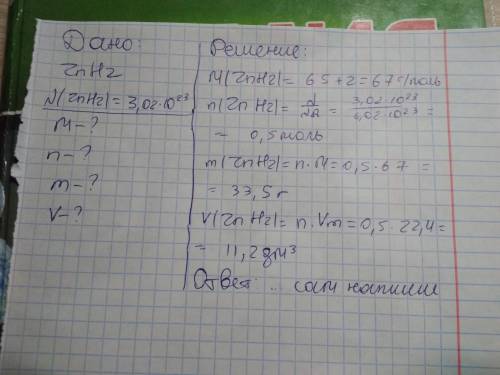 Дано:
ZnH2
N(ZnH2) = 3,02·10^23
M-?
n-?
m-?
V-?
Решение:
M(ZnH2) = 65+2=67 г/моль
n(ZnH2) = N/NA = 3,02·10^23/6,02·10^23 =
= 0,5 моль
m(ZnH2) = n·M = 0,5·67 =
= 33,5 г
V(ZnH2) = n·Vm = 0,5·22,4 =
= 11,2 дм³
Ответ: ... сам напиши